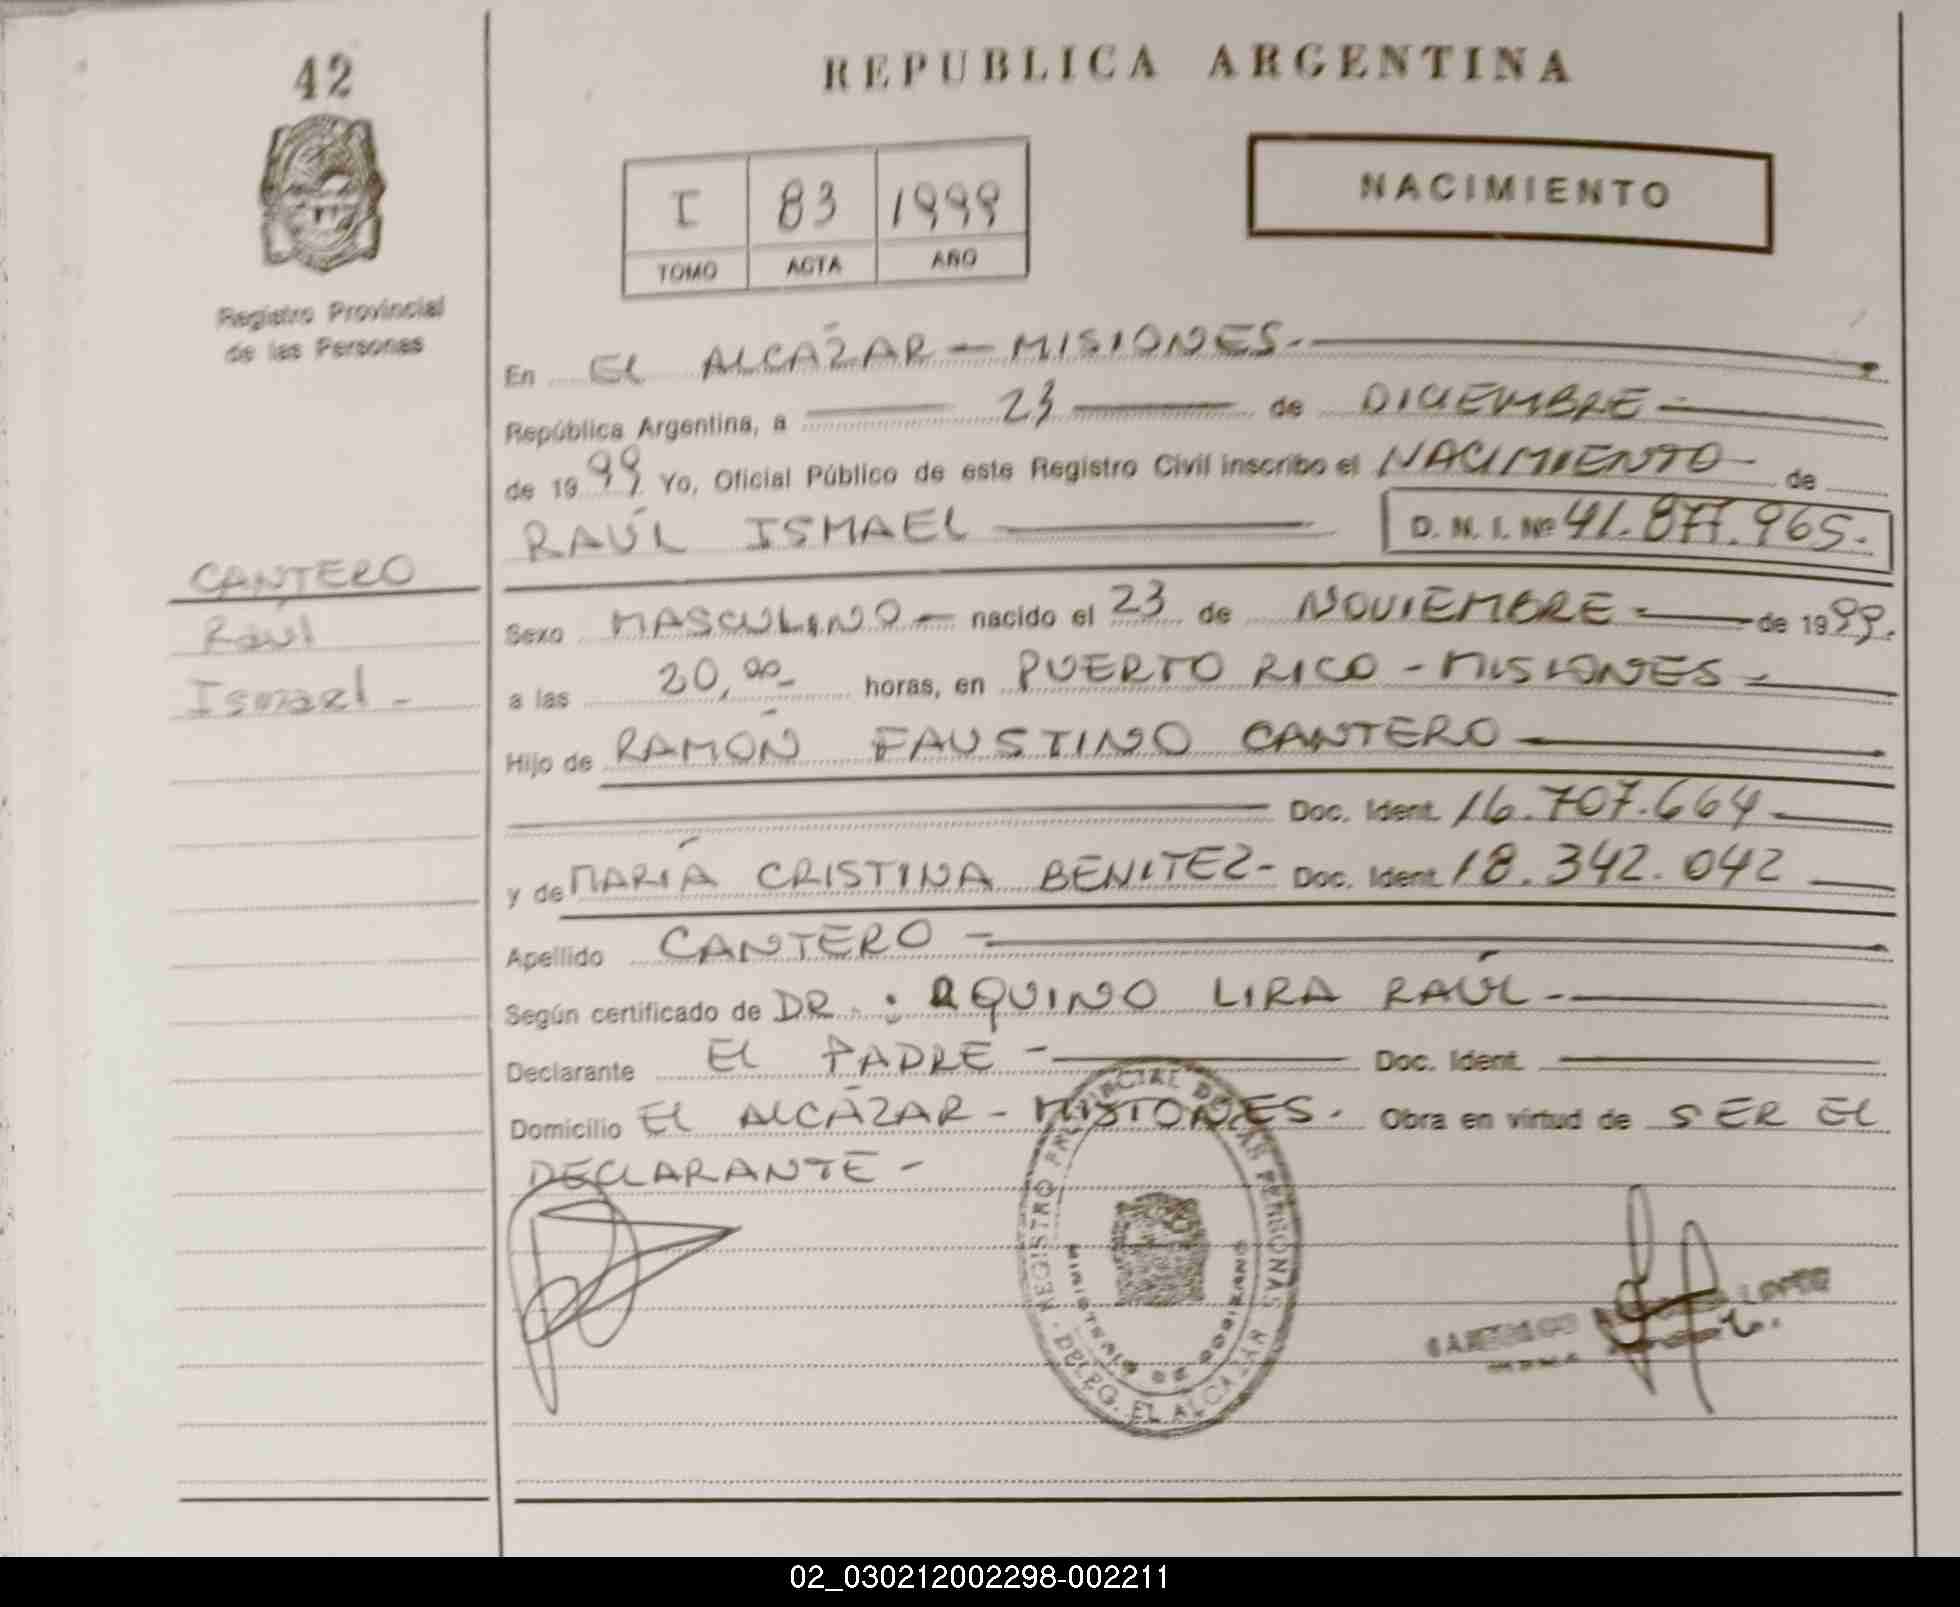 42
REPUBLICA ARGENTINA
I 83 1999
TOMO ACTA AÑO
NACIMIENTO
Registro Provincial
de las Personas
En EL ALCÁZAR - MISIONES.-
República Argentina, a 23 de DICIEMBRE
de 1999 Yo, Oficial Público de este Registro Civil inscribo el NACIMIENTO de
RAÚL ISMAEL D. N. I. Nº 41.877.965.
CANTERO
Raúl
Ismael -
Sexo MASCULINO - nacido el 23 de NOVIEMBRE de 1999.
a las 20,00 horas, en PUERTO RICO - MISIONES -
Hijo de RAMÓN FAUSTINO CANTERO
Doc. Ident. 16.707.664
y de MARÍA CRISTINA BENITEZ - Doc. Ident. 18.342.042
Apellido CANTERO -
Según certificado de DR.: AQUINO LIRA RAÚL -
Declarante EL PADRE - Doc. Ident.
Domicilio EL ALCÁZAR - MISIONES. Obra en virtud de SER EL
DECLARANTE -
REGISTRO PROVINCIAL DE LAS PERSONAS
MINISTERIO DE GOBIERNO
DELEG. EL ALCAZAR
02_030212002298-002211